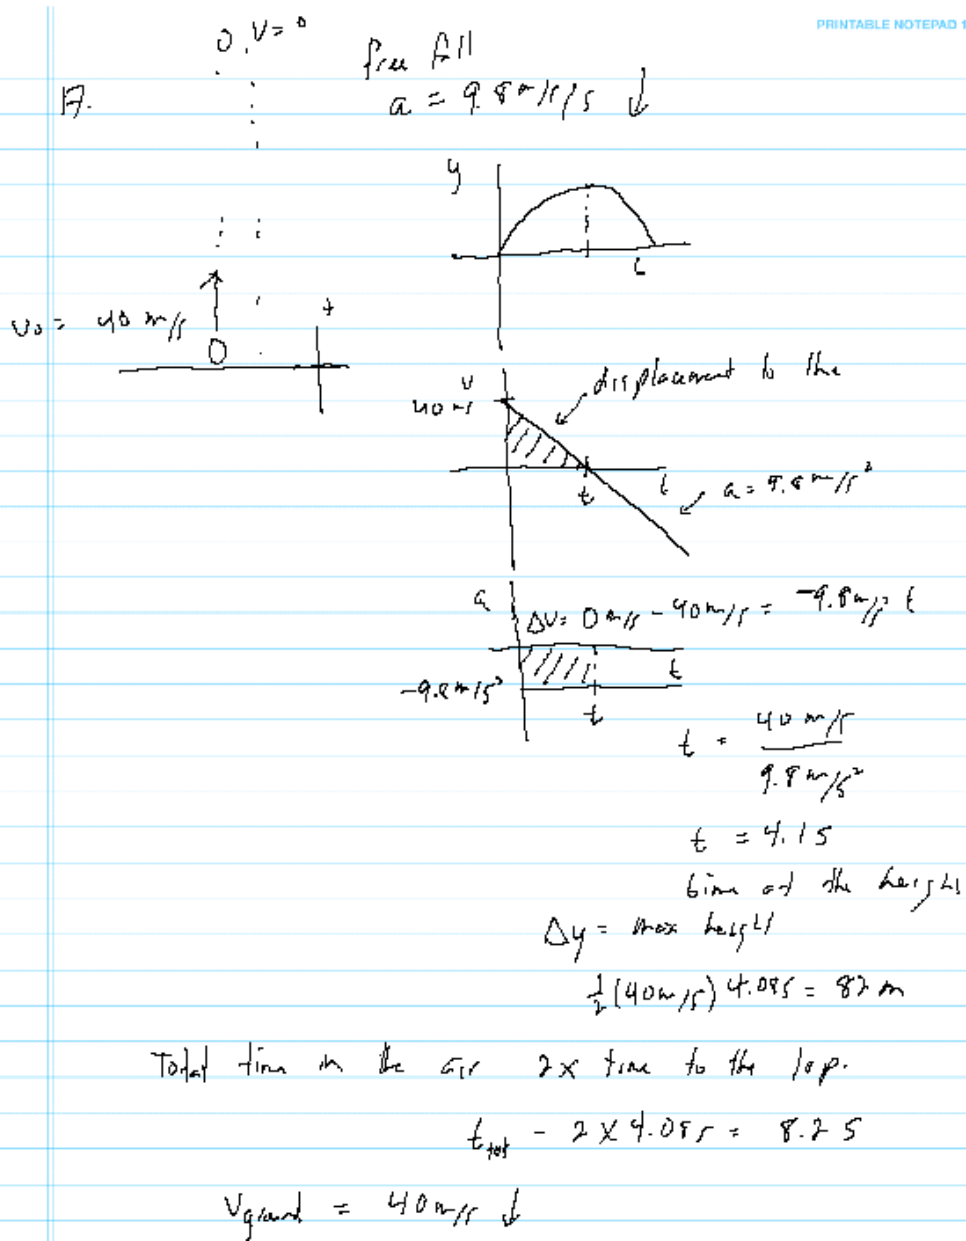 PRINTABLE NOTEPAD 1
0, v = 0
free fall
17.
a = 9.8 m/s/s ↓
y
t
v₀ = 40 m/s
+
v
40 m/s
displacement to the
t
t
a = 9.8 m/s²
a
Δv = 0 m/s - 40 m/s = -9.8 m/s² t
t
-9.8 m/s²
t
t = 40 m/s / 9.8 m/s²
t = 4.1 s
time at the height
Δy = max height
½ (40 m/s) 4.08 s = 82 m
Total time in the air 2x time to the top.
t_tot - 2 x 4.08 s = 8.2 s
v_ground = 40 m/s ↓